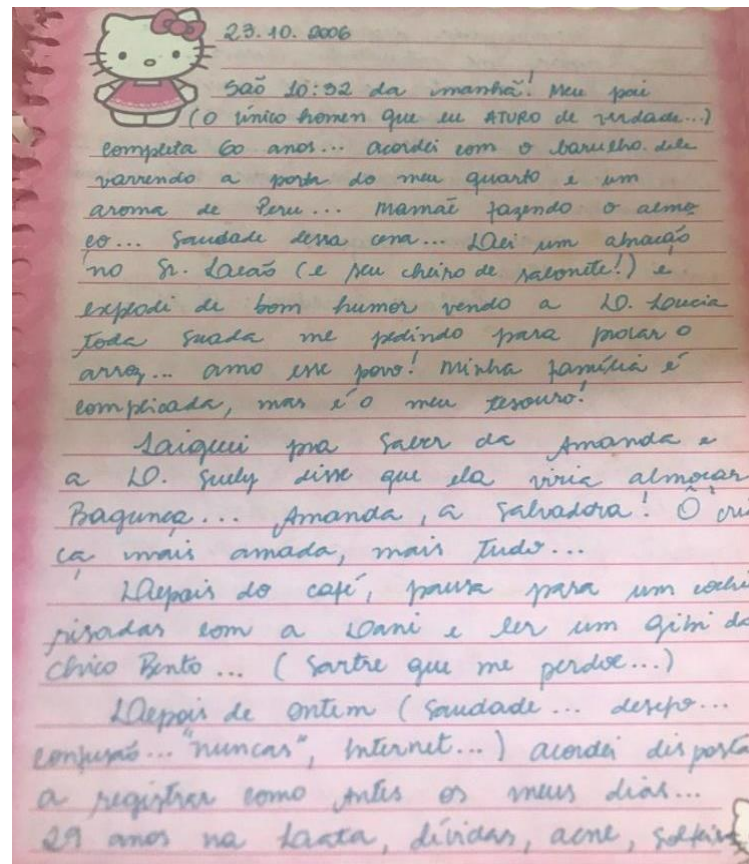 23.10.2006
São 10:32 da manhã! Meu pai
(O único homen que eu ATURO de verdade...)
completa 60 anos... acordei com o barulho dele
varrendo a porta do meu quarto e um
aroma de Peru... Mamãe fazendo o almo
ço... Saudade dessa cena... Dei um abração
no Sr. (e seu cheiro de sabonete!) e
explodi de bom humor vendo a D.
toda suada me pedindo para provar o
arroz... amo esse povo! Minha família é
complicada, mas é o meu tesouro!
pra saber da Amanda e
a D. Suely disse que ela viria almoçar
Bagunça... Amanda, a salvadora! Ô
ça mais amada, mais tudo...
Depois do café, pausa para um cochi
risadas com a Dani e ler um gibi do
Chico Bento... (Sartre que me perdoe...)
Depois de ontem (Saudade... desejo...
confusão... "nuncas", Internet...) acordei disposta
a registrar como antes os meus dias...
29 anos na, dívidas, acne, solteira